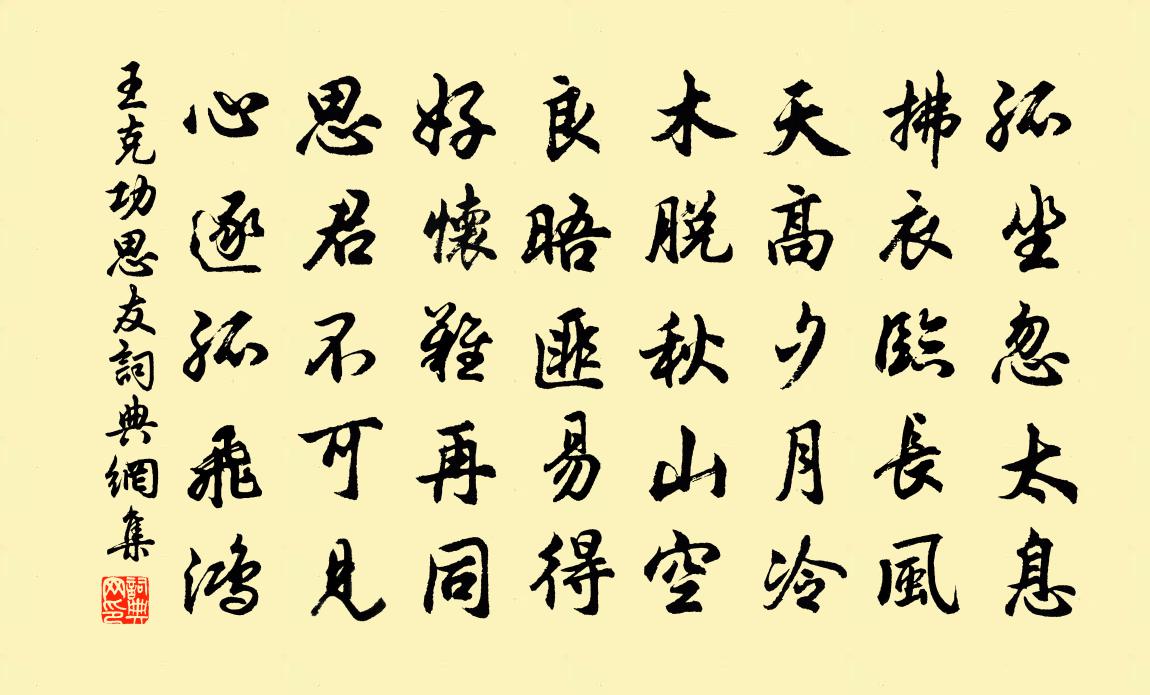 孤坐忽太息
拂衣臨長風
天高夕月冷
木脫秋山空
良晤匪易得
好懷難再同
思君不可見
心逐孤飛鴻
王克功思友詞典網集
詞典网印